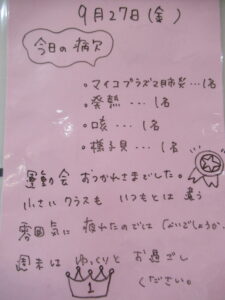 9月27日(金)
今日の病欠
・マイコプラズマ肺炎…1名
・発熱 … 1名
・咳 … 1名
・様子見 … 1名
運動会 おつかれさまでした。
小さいクラスも いつもとは 違う
雰囲気に 疲れたのでは ないでしょうか。
週末は ゆっくりと お過ごし
ください。
1